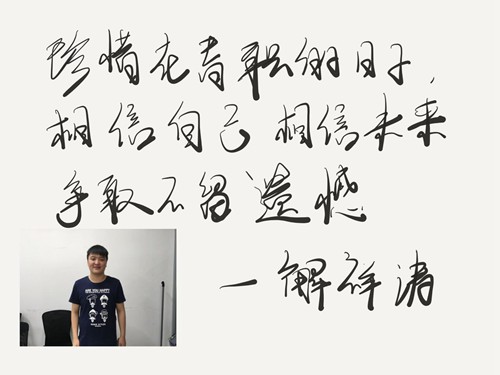 珍惜在青职的日子，
相信自己 相信未来
争取不留遗憾
一解祥涛
ARE YOU HAPPY